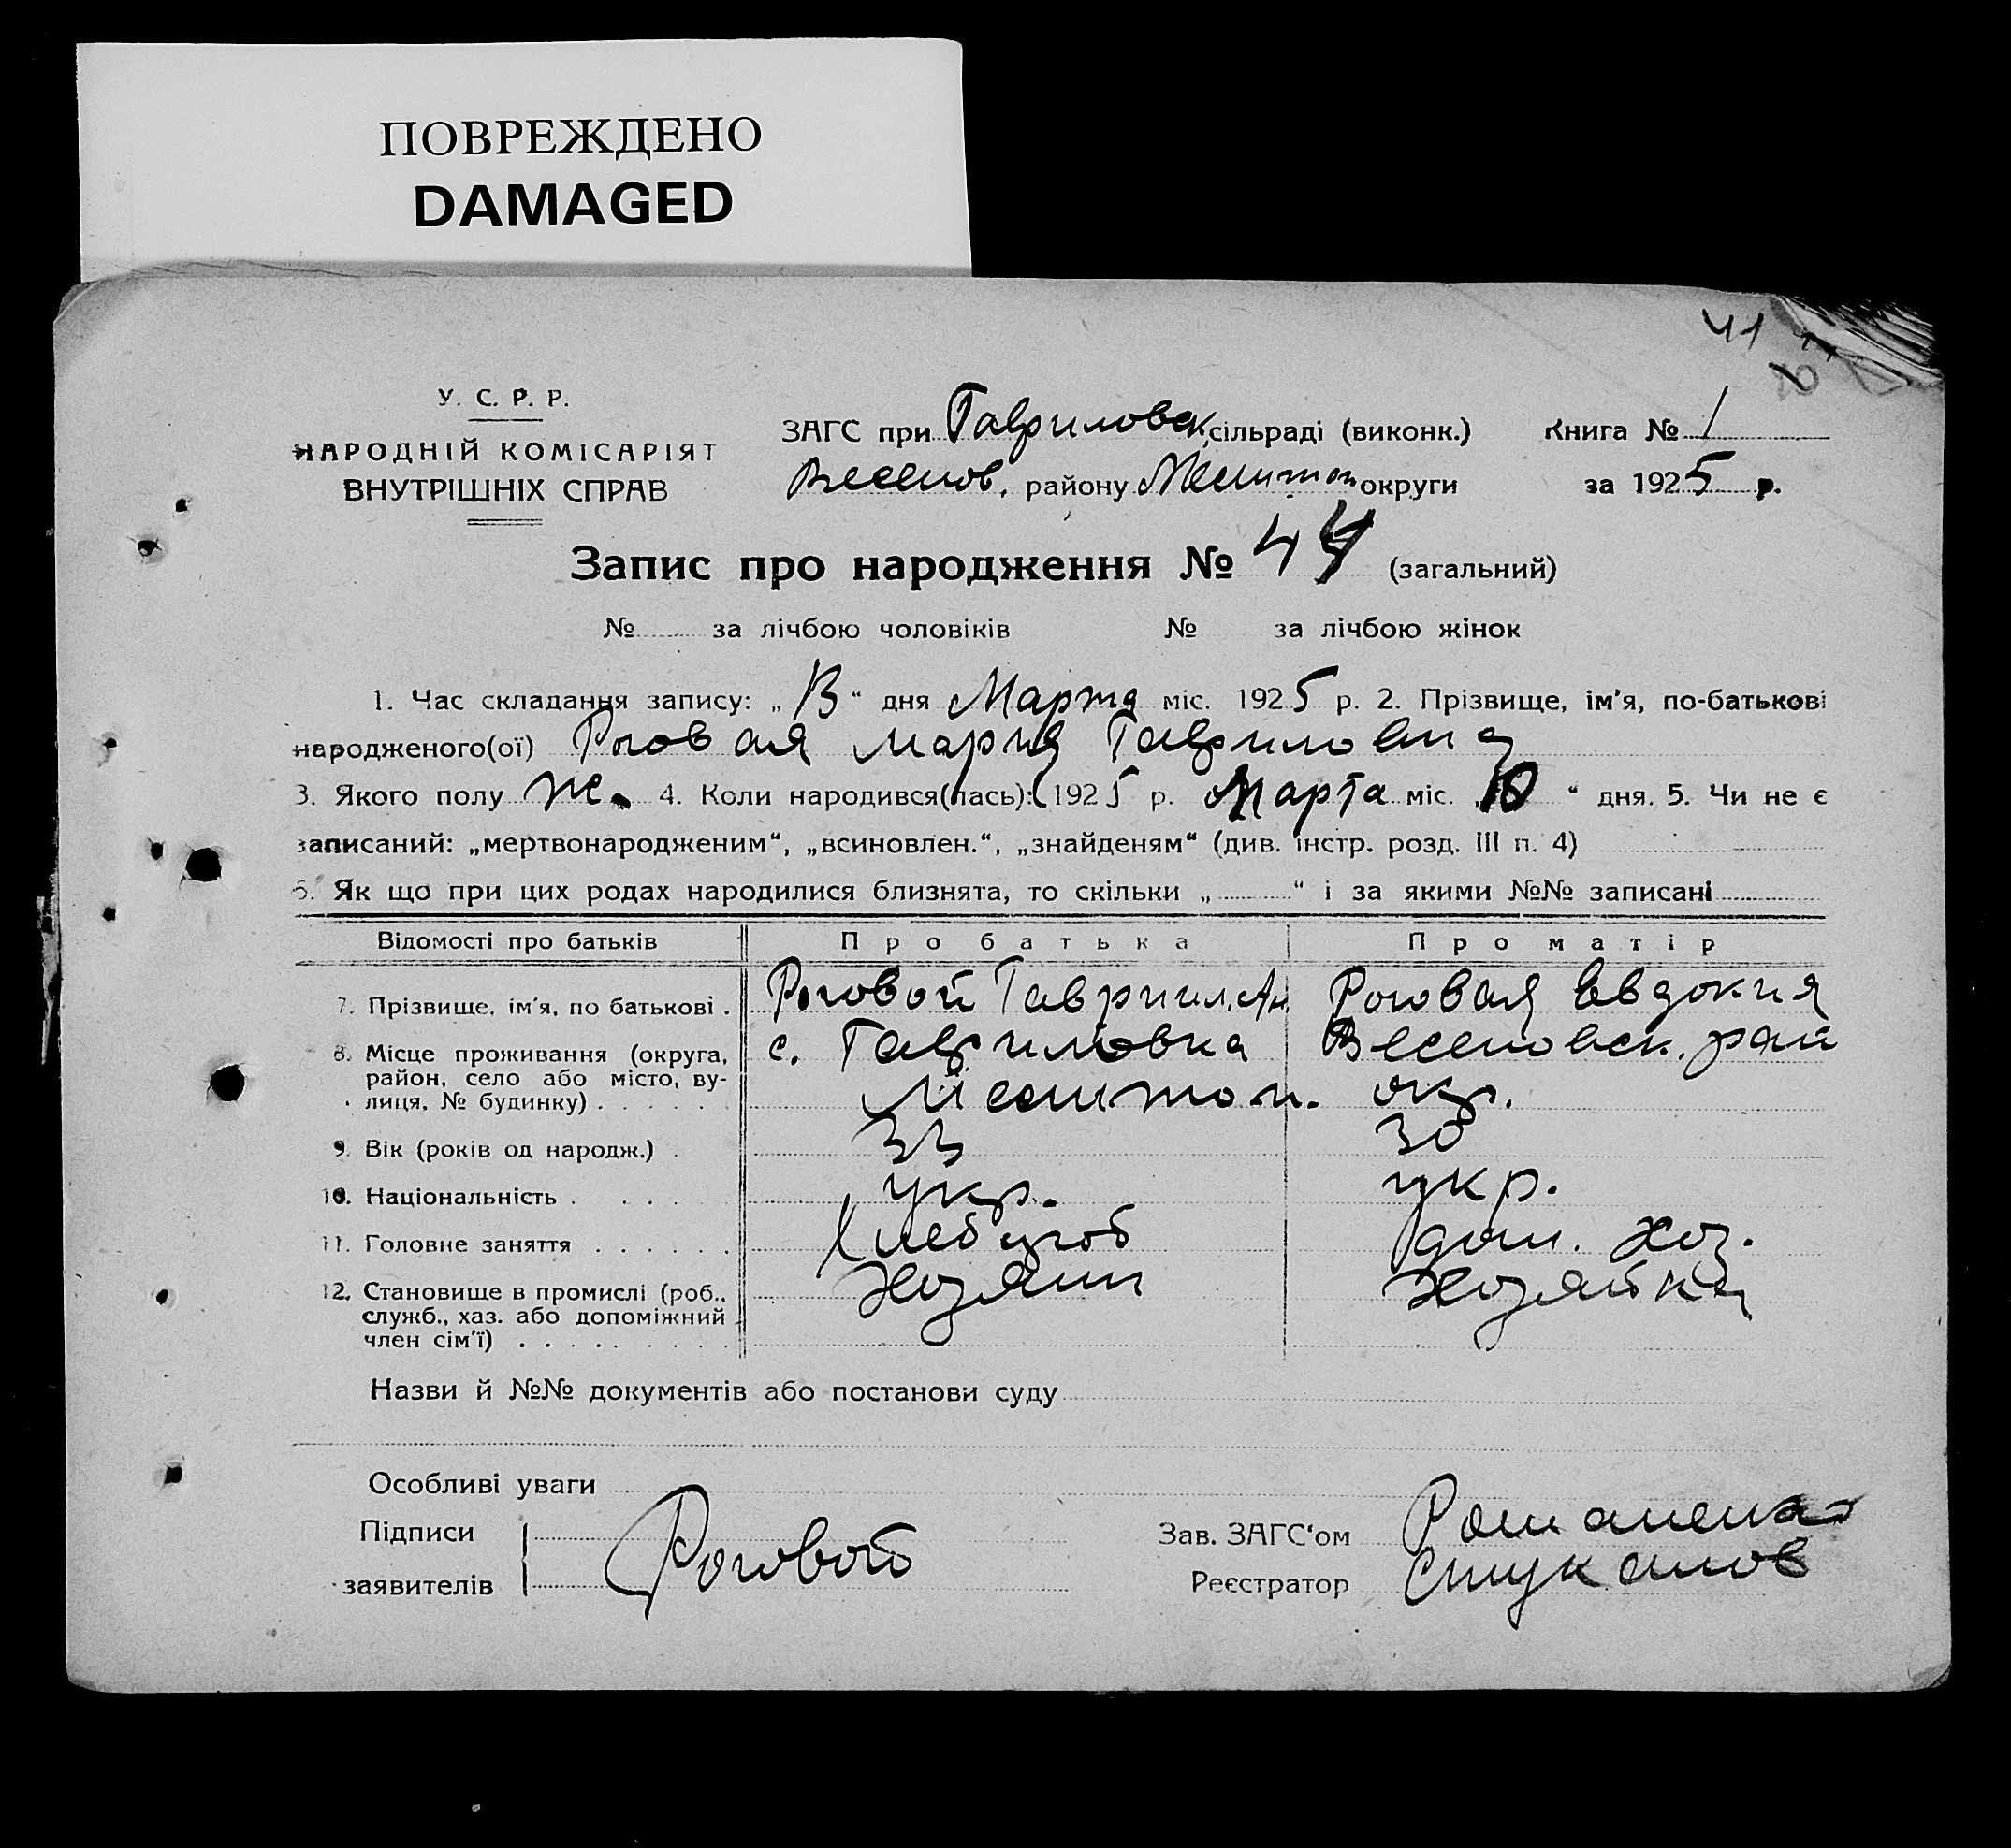 ПОВРЕЖДЕНО
DAMAGED
41
У. С. Р. Р.
НАРОДНІЙ КОМІСАРІЯТ
ВНУТРІШНІХ СПРАВ
ЗАГС при Гавриловск, сільраді (виконк.) Книга № 1
Веселов, району Мелитоп округи за 1925 р.
Запис про народження № 44 (загальний)
№ за лічбою чоловіків № за лічбою жінок
1. Час складання запису: „13“ дня Марта міс. 1925 р. 2. Прізвище, ім’я, по-батькові
народженого(ої) Роговая Мария Гавриловна
3. Якого полу Ж. 4. Коли народився(лась): 1925 р. Марта міс. „10“ дня. 5. Чи не є
записаний: „мертвонародженим“, „всиновлен.“, „знайденям“ (див. інстр. розд. III п. 4)
6. Як що при цих родах народилися близнята, то скільки „ “ і за якими №№ записані
Відомості про батьків Про батька Про матір
7. Прізвище, ім’я, по батькові . Роговой Гавриил. Ан. Роговая Евдокия
8. Місце проживання (округа, район, село або місто, ву- с. Гавриловка Веселовск. рай
лиця, № будинку) . . . . . Мелитоп. окр.
9. Вік (років од народж.) . 33 30
10. Національність . . . . укр. укр.
11. Головне заняття . . . . . . Хлебороб дом. хоз.
12. Становище в промислі (роб., Хозяин Хозяйка
служб., хаз. або допоміжний
член сім’ї) . . . . . . . . .
Назви й №№ документів або постанови суду
Особливі уваги
Підписи Зав. ЗАГС‘ом Романенко
заявителів Роговой Реєстратор Стукалов